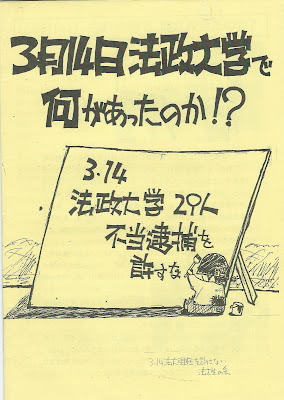 3月14日法政大学で
何があったのか!?
3.14
法政大学 29人
不当逮捕を
許すな
3.14法大弾圧を許さない
法大生の会